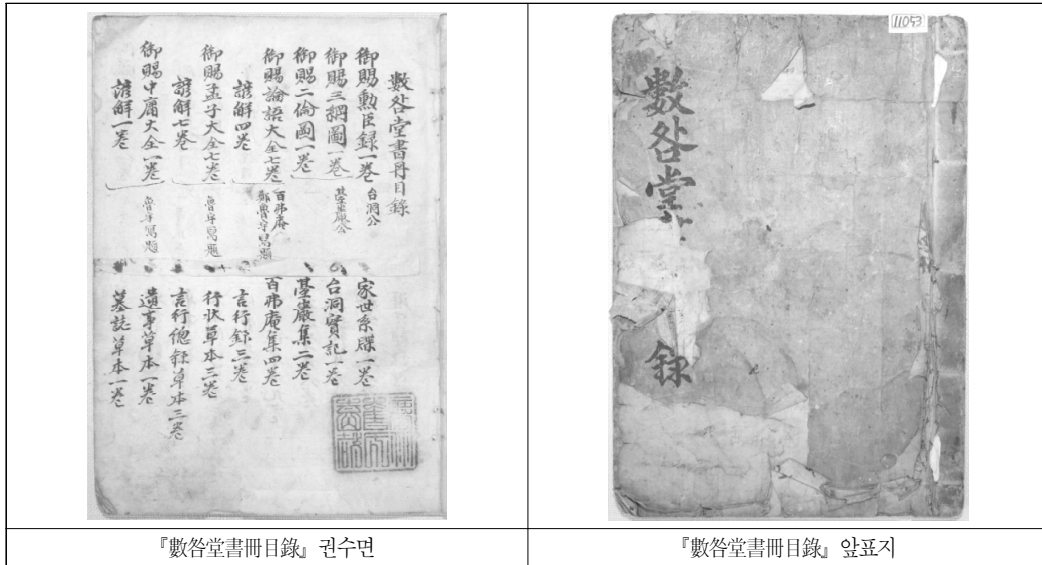 數咎堂書冊目錄
御賜勳臣錄一卷
台洞公
御賜三綱圖一卷
臺巖公
御賜二倫圖一卷
御賜論語大全七卷
百弗庵
諺解四卷
御賜孟子大全七卷
魯亭寫題
諺解七卷
御賜中庸大全一卷
魯亭寫題
諺解一卷
家世系牒一卷
台洞實記一卷
臺巖集二卷
百弗庵集四卷
言行錄三卷
行狀草本三卷
言行總錄草本三卷
遺事草本一卷
墓誌草本一卷
『數咎堂書冊目錄』 권수면
11053
數咎堂
錄
『數咎堂書冊目錄』 앞표지